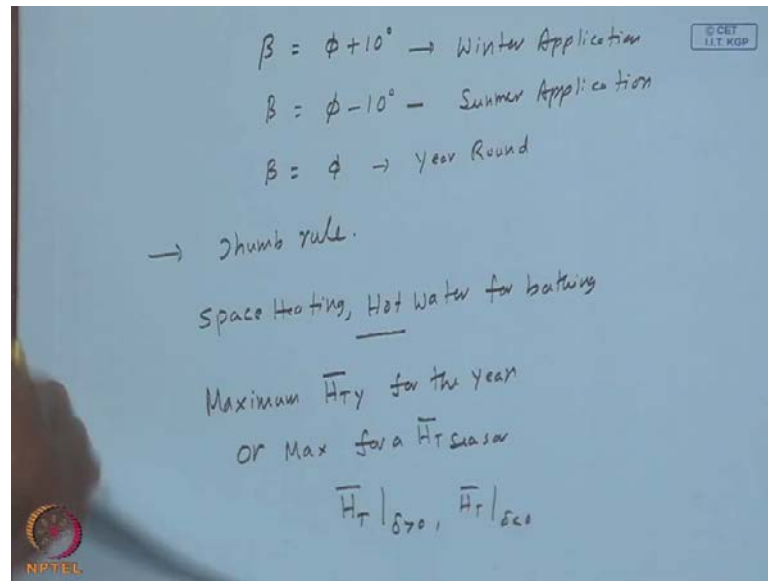 © CET
I.I.T. KGP
β = φ+10° → Winter Application
β = φ-10° - Summer Application
β = φ → Year Round
→ Thumb rule.
Space Heating, Hot Water for bathing
Maximum H̅Ty for the year
or Max for a H̅T season
H̅T|δ>0, H̅T|δ<0
NPTEL